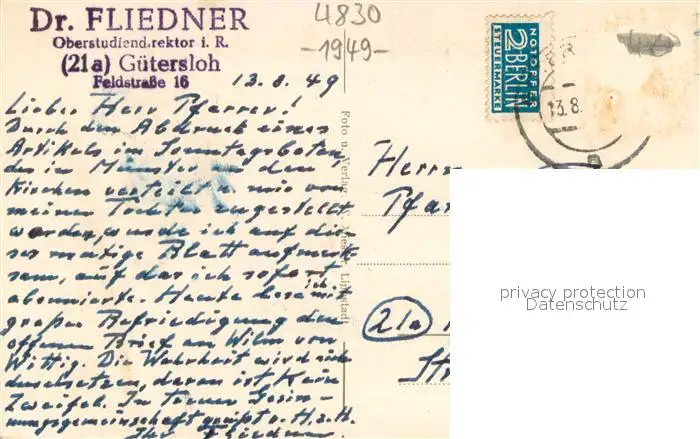 Dr. FLIEDNER
Oberstudiendirektor i. R.
(21a) Gütersloh
Feldstraße 16
4830
-1949-
NOTOPFER
2 BERLIN
STEUERMARKE
13.8.
13.8.49
Lieber Herr Pfarrer!
Durch den Abdruck eines
Artikels im Sonntagsboten,
der in Münster in den
Kirchen verteilt u. mir von
meiner Tochter zugestellt
worden, wurde ich auf die-
ses mutige Blatt aufmerk-
sam, auf das ich sofort
abonnierte. Heute lese ich mit
großer Befriedigung den
offenen Brief an Wilm von
Wittig. Die Wahrheit wird sich
durchsetzen, daran ist kein
Zweifel. In treuer Gesin-
nungsgemeinschaft grüßt
Ihr Fliedner
Foto u. Verlag
Lippstadt
Herrn
Pfar
(21a)
Str
privacy protection
Datenschutz